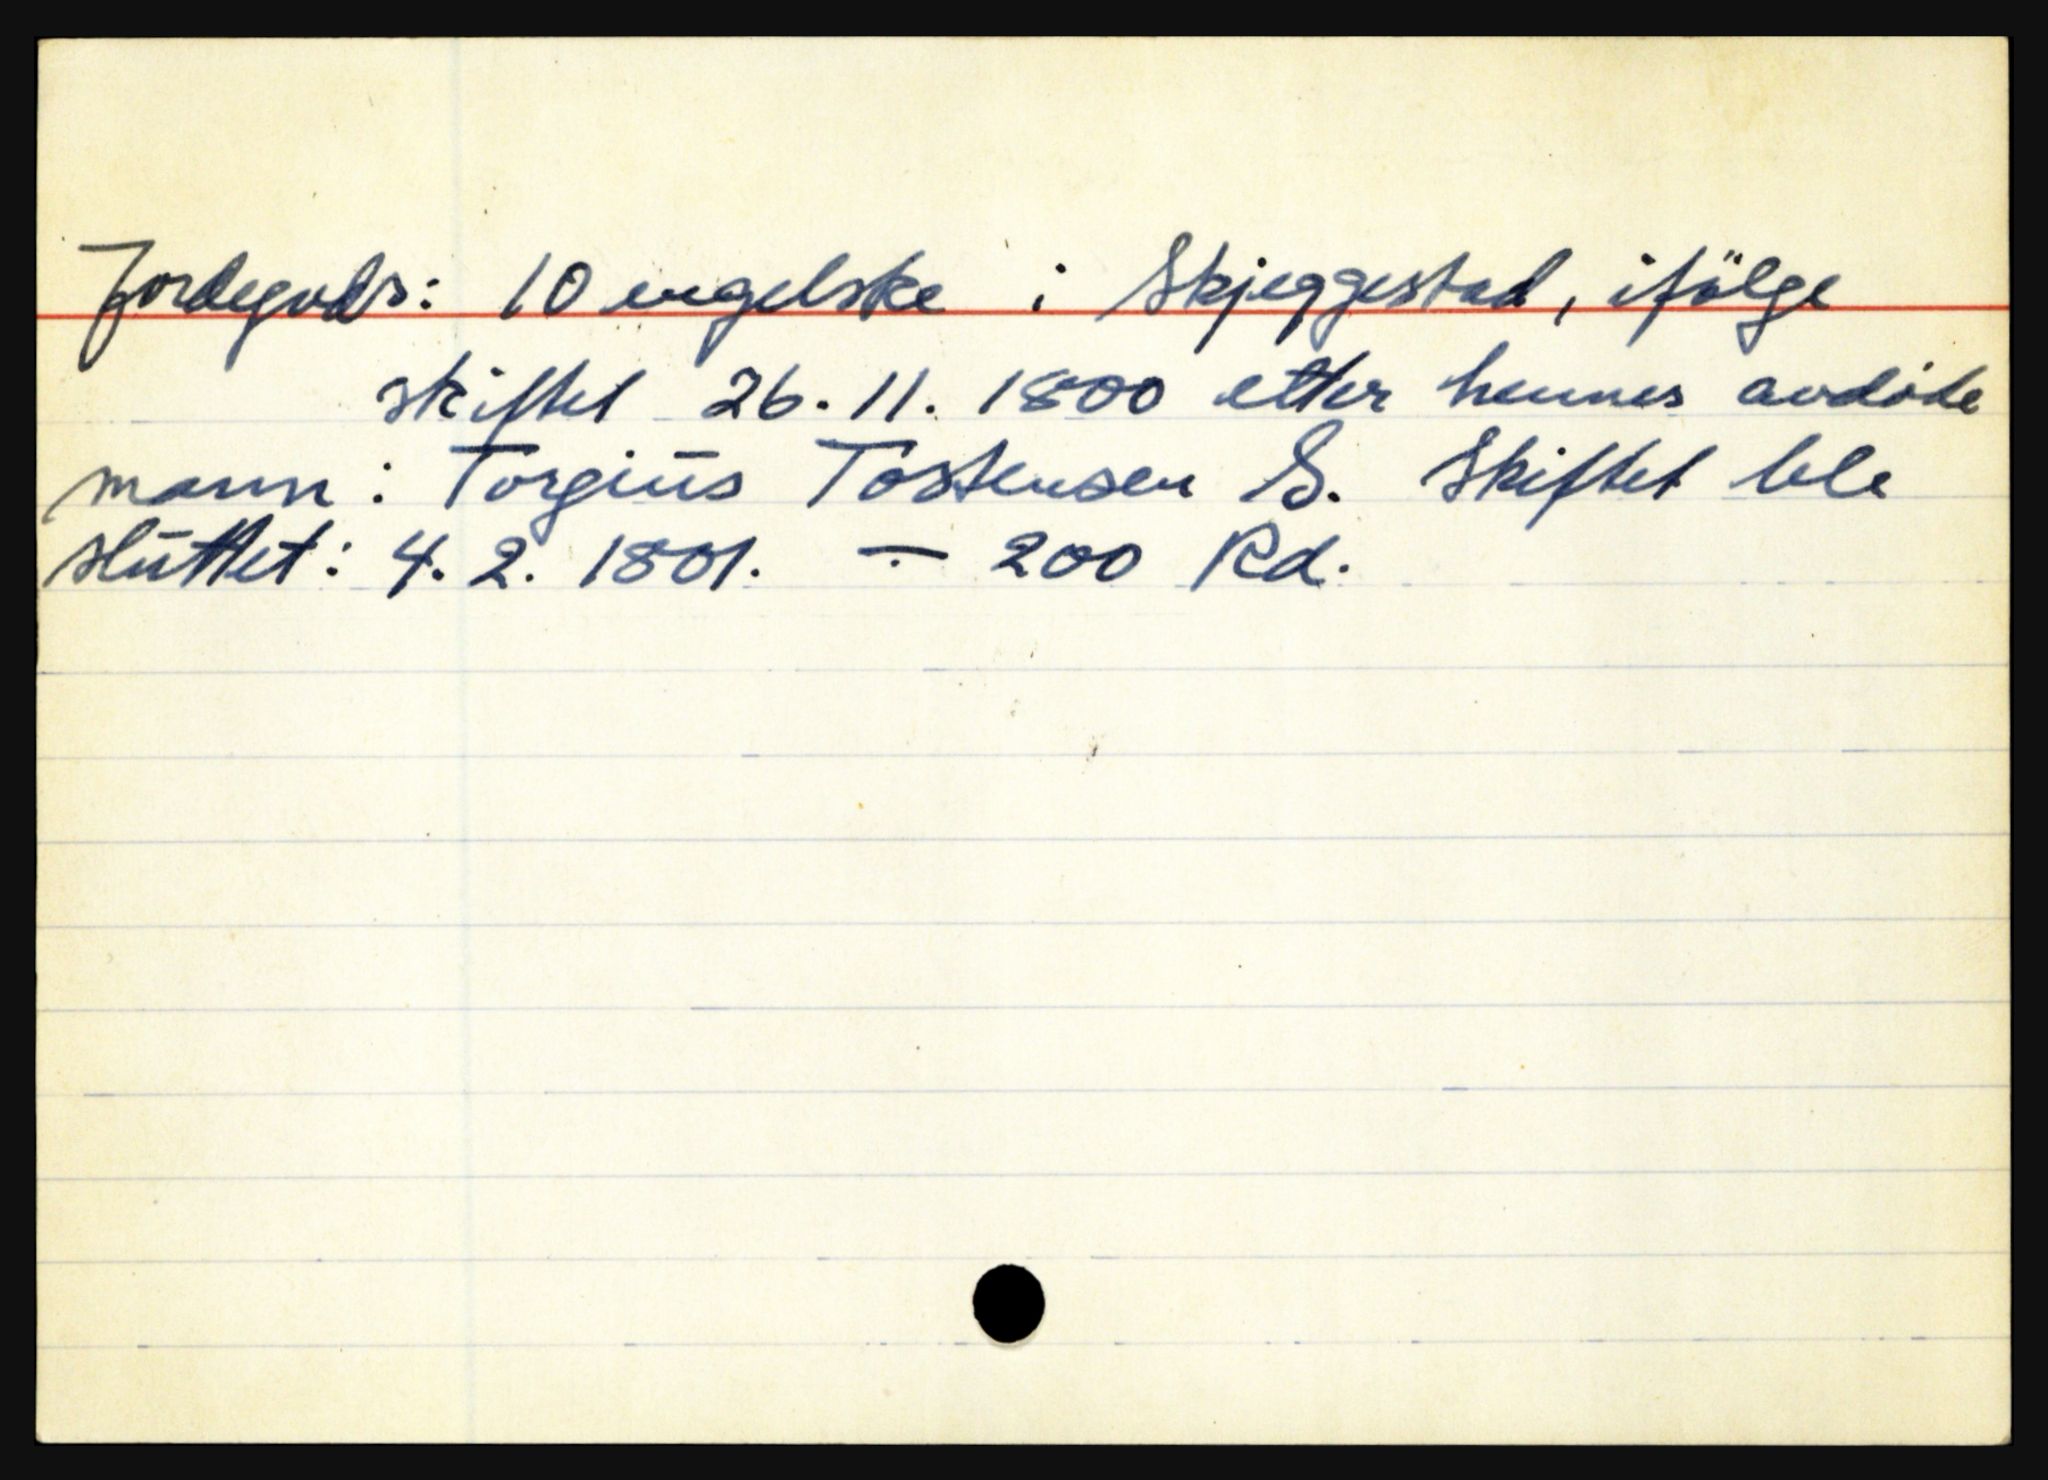 Jordegods: 10 engelske i Skjeggestad, ifölge
skiftet 26. 11. 1800 etter hennes avdöde
mann: Torgius Tostensen S. Skiftet ble
sluttet: 4. 2. 1801. — 200 Rd.